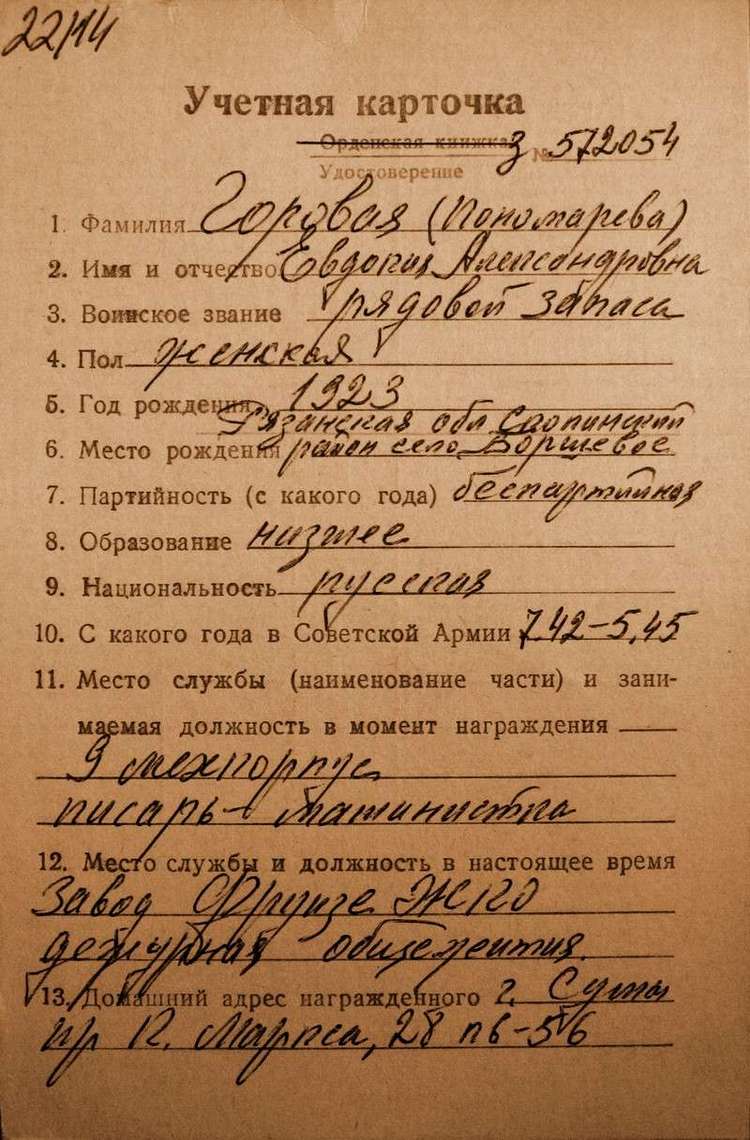 22/14
Учетная карточка
Орденская книжка З № 572054
Удостоверение
1. Фамилия Горовая (Пономарева)
2. Имя и отчество Евдокия Александровна
3. Воинское звание рядовой запаса
4. Пол женская
5. Год рождения 1923
Рязанская обл. Сапожинский
6. Место рождения район село Борщевое
7. Партийность (с какого года) беспартийная
8. Образование низшее
9. Национальность русская
10. С какого года в Советской Армии 7.42-5.45
11. Место службы (наименование части) и зани-
маемая должность в момент награждения
9 мехкорпус
писарь-машинистка
12. Место службы и должность в настоящее время
Завод Фрунзе ЖКО
дежурная общежития.
13. Домашний адрес награжденного г. Сумы
пр К. Маркса, 28 кв-56